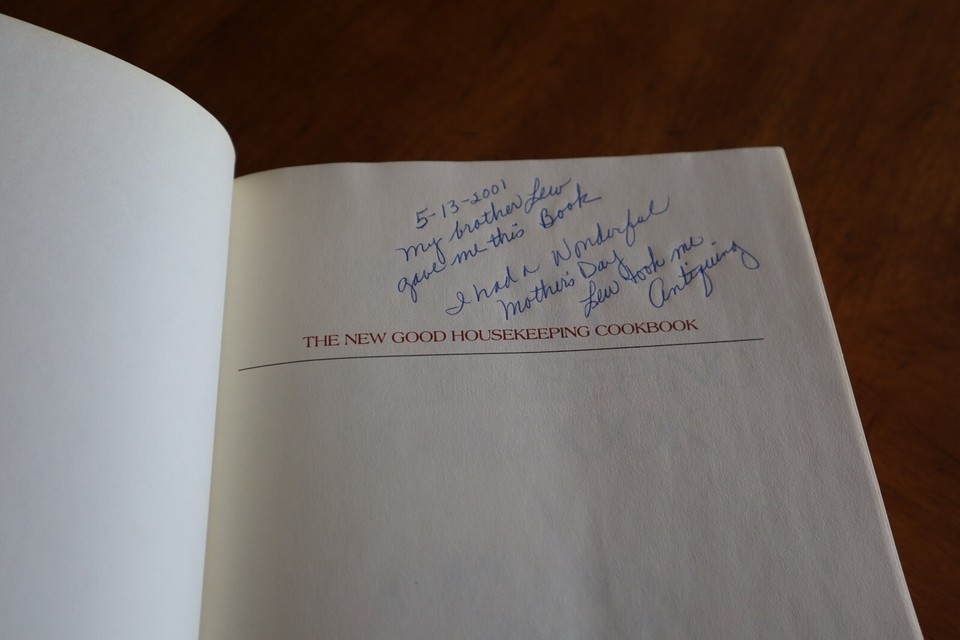 5-13-2001
My brother Lew
gave me this Book
I had a Wonderful
Mother's Day
Lew took me
Antiquing
THE NEW GOOD HOUSEKEEPING COOKBOOK